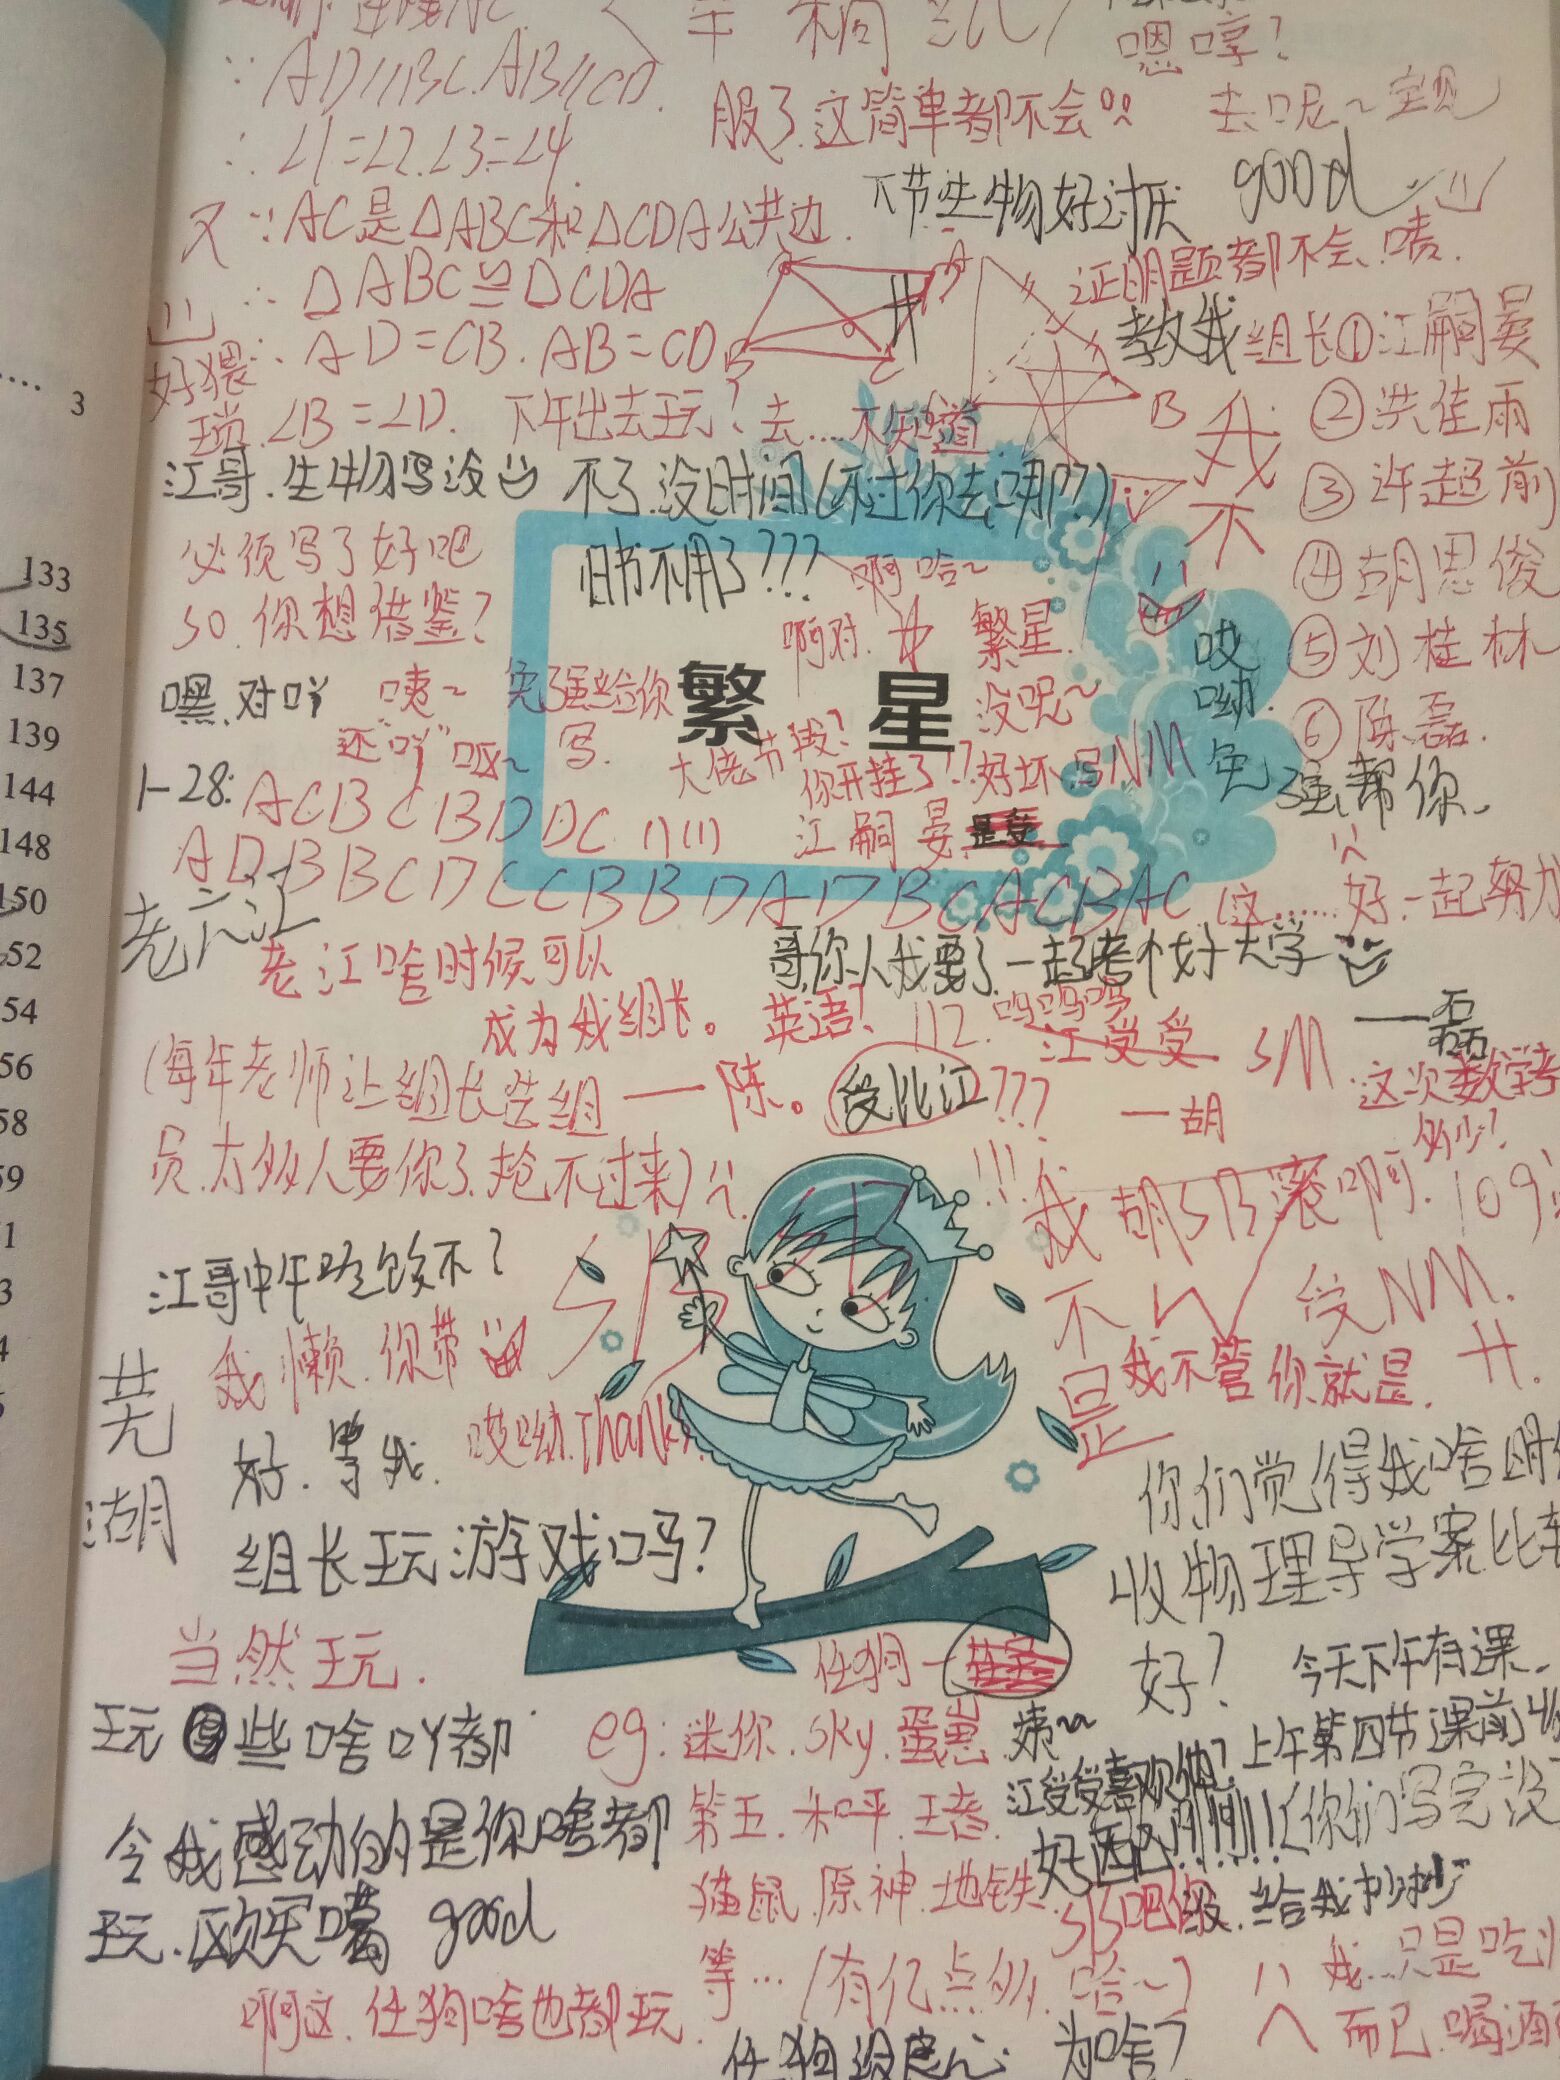 ∵ AD∥BC.AB∥CD.
嗯哼?
服了.这简单都不会
去呢~宝贝
∴ ∠1=∠2.∠3=∠4.
下节生物好讨厌
good
又∵AC是△ABC和△CDA公共边.
证明题都不会.啧.
∴ △ABC≌△CDA
教我
组长①江嗣晏
∴ AD=CB.AB=CD
好猥琐.
②洪佳雨
∠B=∠D.
下午出去玩?
去...不知道
B
我不
③许超前
江哥.生物写没
不了.没时间(不过你去哪??)
必须写了好吧
归书不用了???
啊哈~
④胡思俊
so.你想借鉴?
啊对.
繁星.
哎呦.
⑤刘桂林
嘿.对吖
咦~
免强给你写.
繁 星
没呢~
⑥陈磊.
还"吖"呕~
大佬.节哉?
你开挂了!?
好坏.写NM
免强帮你.
1-28:
ACBCBDDC
江嗣晏
是受
ADBBCDCCBBDADBCACBAC
这......好.一起努力
老六江
哥.你人我要了.一起考个好大学
老江啥时候可以
成为我组长。
英语!
112.
呜呜呜
江受受
SM
—磊
(每年老师让组长选组
—陈。
受比江
???
—胡
这次数学考多少?
员.太多人要你了.抢不过来)
!!!
我胡SB滚啊.
109
江哥中午吃饭不?
SB
不
W
受NM.
我懒.你带
是
我不管你就是.
芜湖
好.等我.
哎呦.Thank
组长玩游戏吗?
你们觉得我啥时
收物理导学案比较
好?
当然玩.
任狗一
今天下午有课.
玩些啥吖都
eg:迷你.sky.蛋崽
咦~
上午第四节课前收
江受受喜欢
第五.和平.王者.
好配!!!!!!
(你们写完没
令我感动的是你啥都
猫鼠.原神.地铁.
SB吧你
给我抄抄
玩.欧买噶 good
等...(有亿点多.哈~)
我...只是吃
啊这.任狗啥也都玩.
而已.喝酒
任狗没良心
为啥?
3
133
135
137
139
144
148
150
52
54
56
58
59